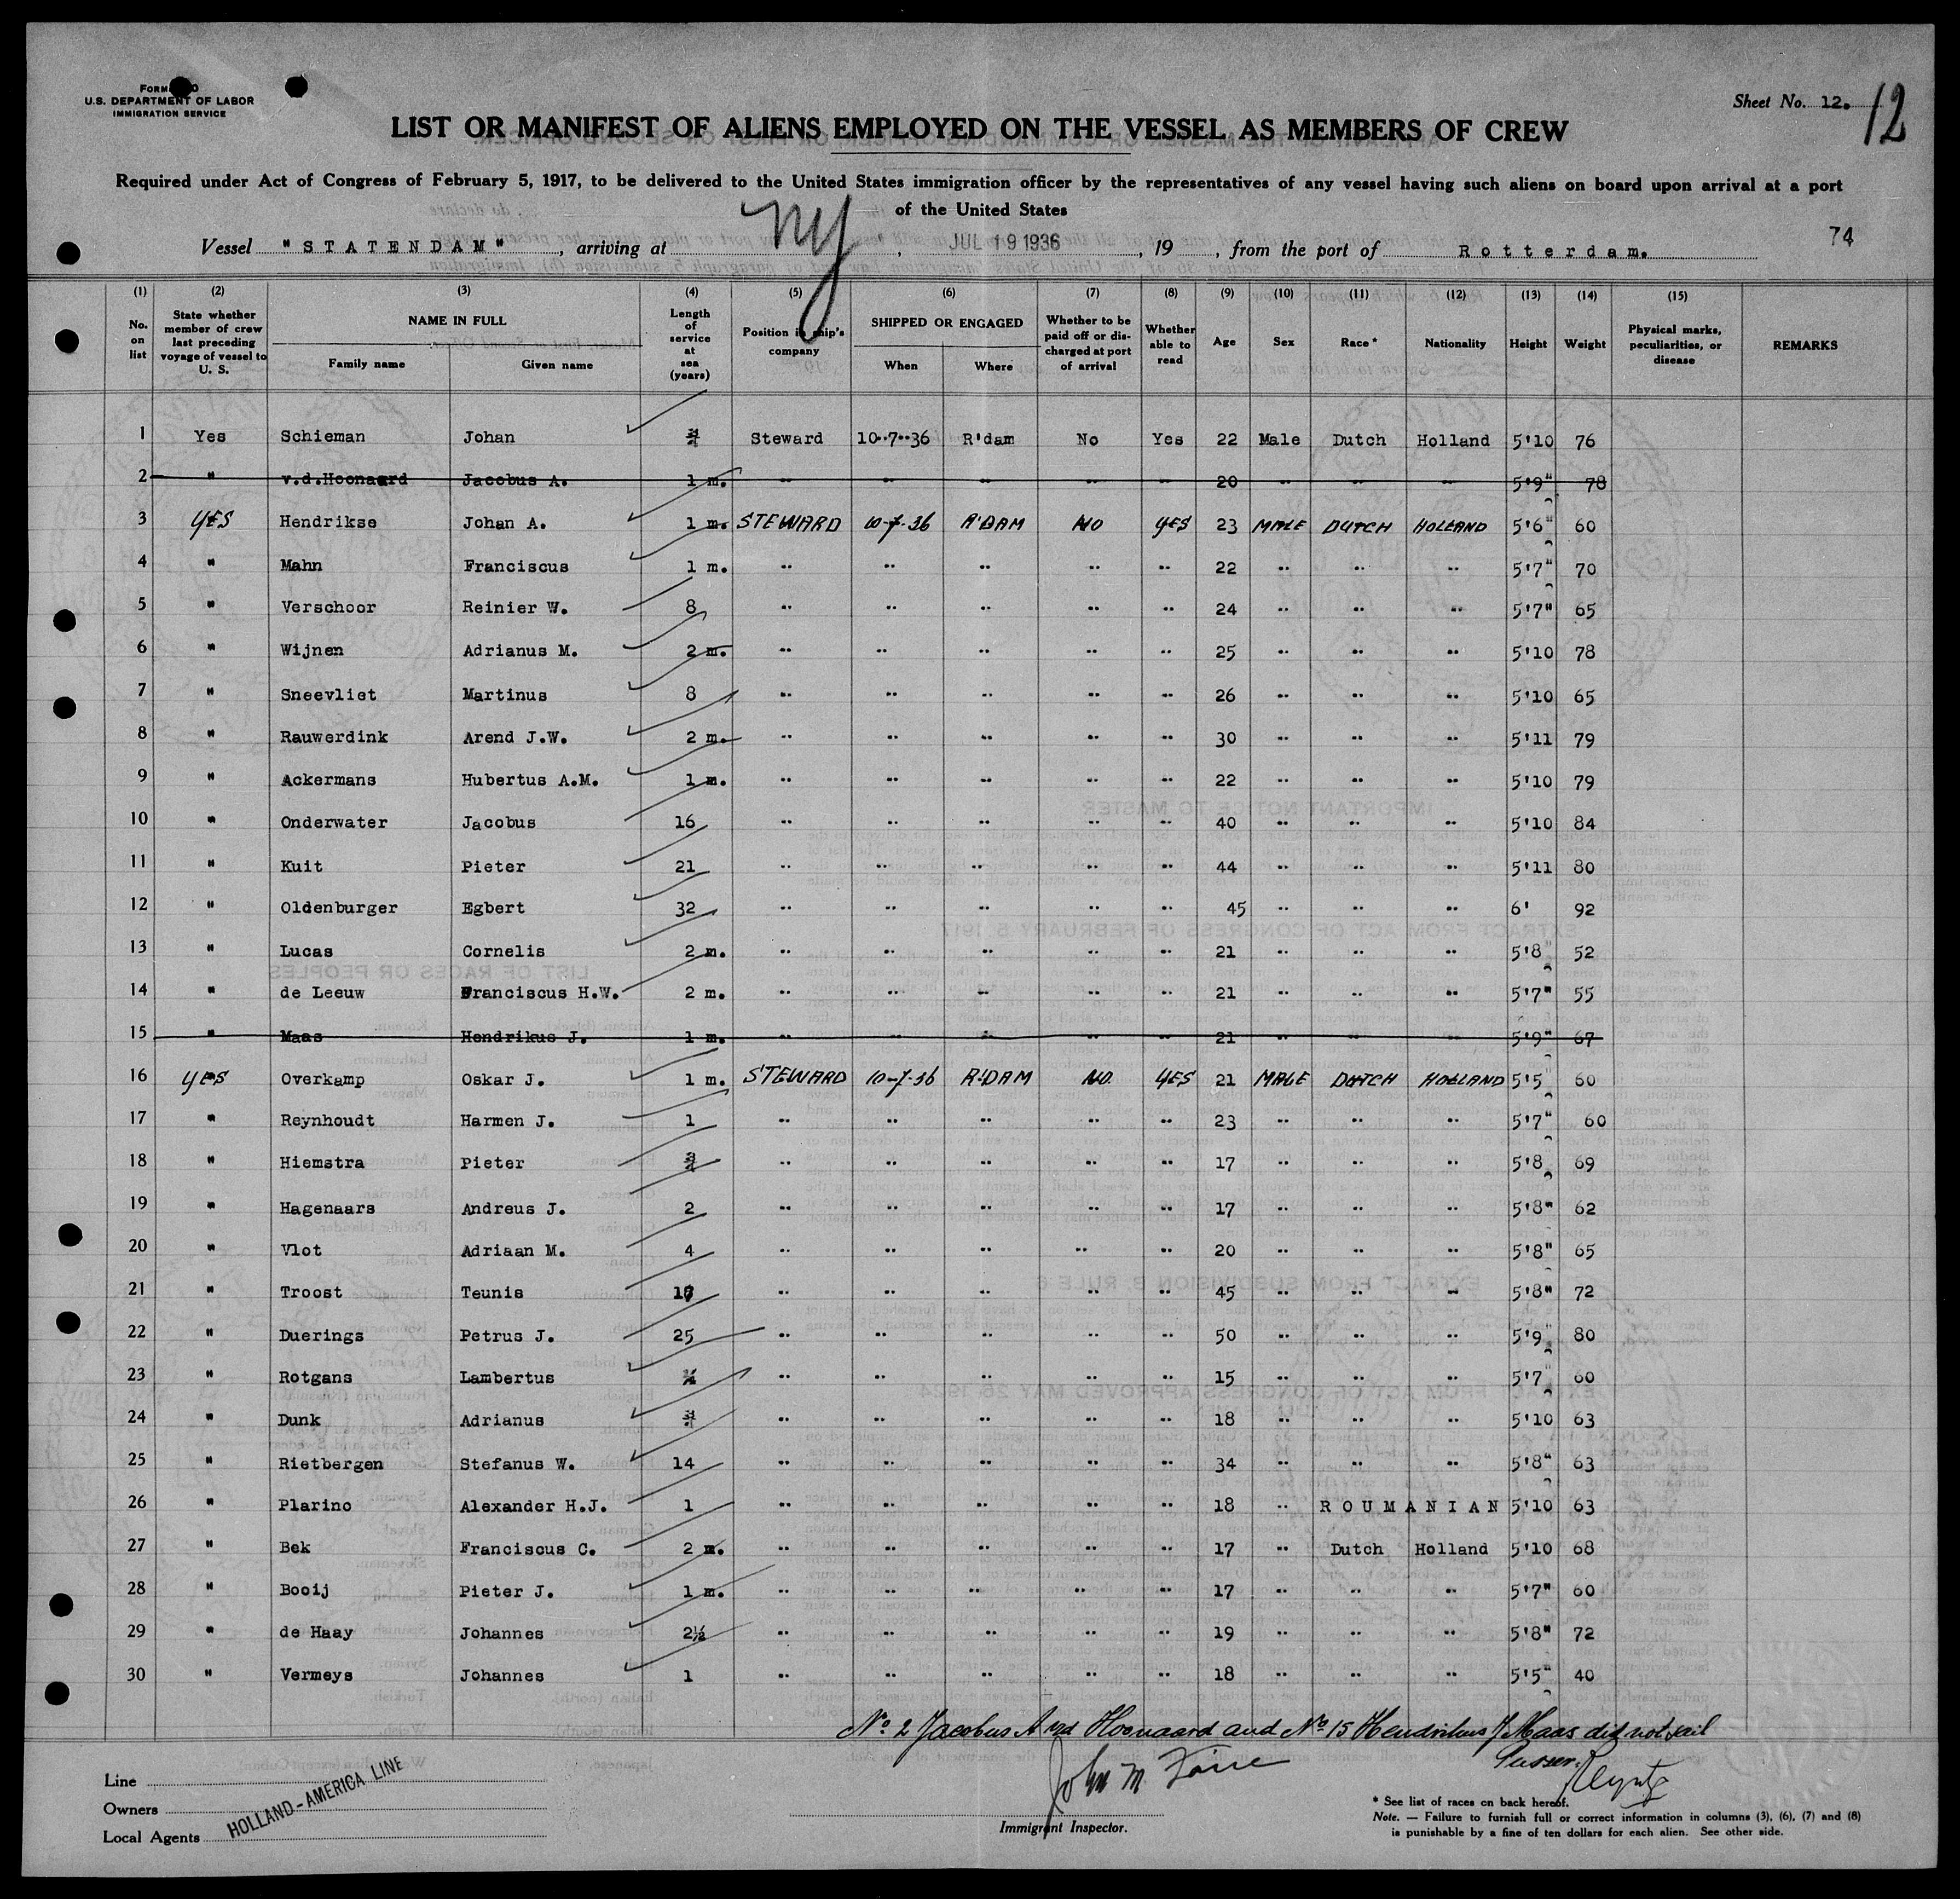 Form
U.S. DEPARTMENT OF LABOR
IMMIGRATION SERVICE
Sheet No. 12. 12
LIST OR MANIFEST OF ALIENS EMPLOYED ON THE VESSEL AS MEMBERS OF CREW
Required under Act of Congress of February 5, 1917, to be delivered to the United States immigration officer by the representatives of any vessel having such aliens on board upon arrival at a port
of the United States
74
Vessel "STATENDAM", arriving at NY, JUL 19 1936, 19 , from the port of Rotterdam.
(1) (2) (3) (4) (5) (6) (7) (8) (9) (10) (11) (12) (13) (14) (15)
No. on list | State whether member of crew last preceding voyage of vessel to U. S. | NAME IN FULL Family name Given name | Length of service at sea (years) | Position in ship's company | SHIPPED OR ENGAGED When Where | Whether to be paid off or discharged at port of arrival | Whether able to read | Age | Sex | Race * | Nationality | Height | Weight | Physical marks, peculiarities, or disease | REMARKS
1 Yes Schieman Johan Steward 10-7-36 R'dam No Yes 22 Male Dutch Holland 5'10 76
2 " v.d.Hoonaard Jacobus A. 1 m. " " " " " 20 " " " 5'9" 78
3 YES Hendrikse Johan A. 1 m. STEWARD 10-7-36 R'DAM NO YES 23 MALE DUTCH HOLLAND 5'6" 60
4 " Mahn Franciscus 1 m. " " " " " 22 " " " 5'7" 70
5 " Verschoor Reinier W. 8 " " " " " 24 " " " 5'7" 65
6 " Wijnen Adrianus M. 2 m. " " " " " 25 " " " 5'10 78
7 " Sneevliet Martinus 8 " " " " " 26 " " " 5'10 65
8 " Rauwerdink Arend J.W. 2 m. " " " " " 30 " " " 5'11 79
9 " Ackermans Hubertus A.M. 1 m. " " " " " 22 " " " 5'10 79
10 " Onderwater Jacobus 16 " " " " " 40 " " " 5'10 84
11 " Kuit Pieter 21 " " " " " 44 " " " 5'11 80
12 " Oldenburger Egbert 32 " " " " " 45 " " " 6' 92
13 " Lucas Cornelis 2 m. " " " " " 21 " " " 5'8" 52
14 " de Leeuw Franciscus H.W. 2 m. " " " " " 21 " " " 5'7" 55
15 " Maas Hendrikus J. 1 m. " " " " " 21 " " " 5'9" 67
16 YES Overkamp Oskar J. 1 m. STEWARD 10-7-36 R'DAM NO YES 21 MALE DUTCH HOLLAND 5'5" 60
17 " Reynhoudt Harmen J. 1 " " " " " 23 " " " 5'7" 60
18 " Hiemstra Pieter " " " " " 17 " " " 5'8" 69
19 " Hagenaars Andreus J. 2 " " " " " 17 " " " 5'8" 62
20 " Vlot Adriaan M. 4 " " " " " 20 " " " 5'8" 65
21 " Troost Teunis " " " " " 45 " " " 5'8" 72
22 " Duerings Petrus J. 25 " " " " " 50 " " " 5'9" 80
23 " Rotgans Lambertus " " " " " 15 " " " 5'7" 60
24 " Dunk Adrianus " " " " " 18 " " " 5'10 63
25 " Rietbergen Stefanus W. 14 " " " " " 34 " " " 5'8" 63
26 " Plarino Alexander H.J. 1 " " " " " 18 " ROUMANIAN 5'10 63
27 " Bek Franciscus C. 2 m. " " " " " 17 " Dutch Holland 5'10 68
28 " Booij Pieter J. 1 m. " " " " " 17 " " " 5'7" 60
29 " de Haay Johannes 2½ " " " " " 19 " " " 5'8" 72
30 " Vermeys Johannes 1 " " " " " 18 " " " 5'5" 40
No 2 Jacobus A vd Hoonaard and No 15 Hendrikus J Maas did not sail
Purser.
John M.
Line
Owners
Local Agents
HOLLAND-AMERICA LINE
Immigrant Inspector.
* See list of races on back hereof.
Note. — Failure to furnish full or correct information in columns (3), (6), (7) and (8)
is punishable by a fine of ten dollars for each alien. See other side.